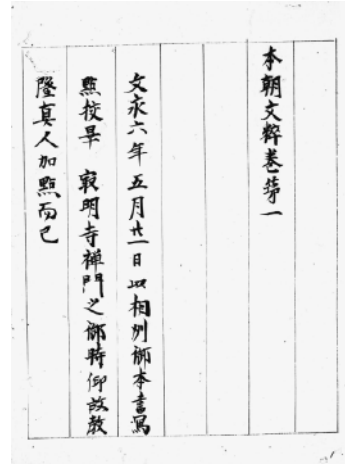 本朝文粹卷第一
文永六年五月廿一日以相州御本書寫
點挍畢　寂明寺禅門之御時仰故教
隆真人加點而已